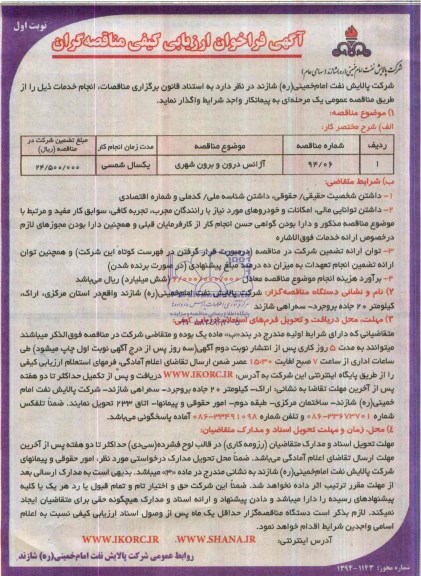 نوبت اول
آگهی فراخوان ارزیابی کیفی مناقصه‌گران
شرکت پالایش نفت امام خمینی (ره) شازند (سهامی عام)
شرکت پالایش نفت امام‌خمینی(ره) شازند در نظر دارد به استناد قانون برگزاری مناقصات، انجام خدمات ذیل را از
طریق مناقصه عمومی یک مرحله‌ای به پیمانکار واجد شرایط واگذار نماید.
۱) موضوع مناقصه:
الف) شرح مختصر کار:
ردیف شماره مناقصه موضوع مناقصه مدت زمان انجام کار مبلغ تضمین شرکت در مناقصه (ریال)
۱ ۹۴/۰۶ آژانس درون و برون شهری یکسال شمسی ۲۴/۵۰۰/۰۰۰
ب) شرایط متقاضی:
۱- داشتن شخصیت حقیقی/ حقوقی، داشتن شناسه ملی/ کدملی و شماره اقتصادی
۲- داشتن توانایی مالی، امکانات و خودروهای مورد نیاز با رانندگان مجرب، تجربه کافی، سوابق کار مفید و مرتبط با
موضوع مناقصه مذکور و دارا بودن گواهی حسن انجام کار از کارفرمایان قبلی و همچنین دارا بودن مجوزهای لازم
درخصوص ارائه خدمات فوق‌الاشاره
۳- توان ارائه تضمین شرکت در مناقصه (درصورت قرار گرفتن در فهرست کوتاه این شرکت) و همچنین توان
ارائه تضمین انجام تعهدات به میزان ده درصد مبلغ پیشنهادی (در صورت برنده شدن)
۴- برآورد هزینه انجام موضوع مناقصه معادل (شش میلیارد) ریال می‌باشد
۲) نام و نشانی دستگاه مناقصه‌گزار: شرکت پالایش نفت امام‌خمینی(ره) شازند واقع‌در استان مرکزی، اراک،
کیلومتر ۲۰ جاده بروجرد- سه‌راهی شازند
۳) مهلت، محل دریافت و تحویل فرم‌های استعلام ارزیابی کیفی:
متقاضیانی که دارای شرایط اولیه مندرج در بند«ب» ماده یک بوده و متقاضی شرکت در مناقصه فوق‌الذکر میباشند
میتوانند به مدت ۵ روز کاری پس از انتشار نوبت دوم آگهی(سه روز پس از درج آگهی نوبت اول چاپ میشود) طی
ساعات اداری از ساعت ۷ صبح لغایت ۱۵:۳۰ عصر ضمن ارسال تقاضای اعلام آمادگی، فرمهای استعلام ارزیابی کیفی
را از طریق پایگاه اینترنتی این شرکت به آدرس: WWW.IKORC.IR دریافت و پس از تکمیل حداکثر تا دو هفته
پس از آخرین مهلت تقاضا به نشانی: اراک- کیلومتر ۲۰ جاده بروجرد- سه‌راهی شازند- شرکت پالایش نفت امام
خمینی(ره) شازند- ساختمان مرکزی- طبقه دوم- امور حقوقی و پیمانها- اتاق ۲۳۳ تحویل نمایند. ضمناً تلفکس
شماره ۳۳۶۷۳۷۰۱-۰۸۶ و تلفن شماره ۳۳۴۹۱۰۹۸-۰۸۶ آماده پاسخگویی می‌باشد.
۴) محل، زمان و مهلت تحویل اسناد و مدارک متقاضیان:
مهلت تحویل اسناد و مدارک متقاضیان (رزومه کاری) در قالب لوح فشرده(سی‌دی) حداکثر تا دو هفته پس از آخرین
مهلت ارسال تقاضای اعلام آمادگی می‌باشد. ضمناً محل تحویل مدارک درخواستی مورد نظر، امور حقوقی و پیمانهای
شرکت پالایش نفت امام‌خمینی(ره) شازند به نشانی مندرج در ماده «۳» میباشد. بدیهی است به مدارک ارسالی بعد
از مهلت مقرر ترتیب اثر داده نخواهد شد. ضمناً این شرکت حق و اختیار تام و تمام قبول یا رد هر یک یا کلیه
پیشنهادهای رسیده را دارا میباشد و دادن پیشنهاد و ارائه اسناد و مدارک هیچگونه حقی برای متقاضیان ایجاد
نمیکند. لازم بذکر است دستگاه مناقصه‌گزار حداقل یک ماه پس از وصول اسناد ارزیابی کیفی نسبت به اعلام
اسامی واجدین شرایط اقدام خواهد نمود.
آدرس اینترنتی: WWW.SHANA.IR WWW.IKORC.IR
روابط عمومی شرکت پالایش نفت امام‌خمینی(ره) شازند
شماره مجوز: ۱۱۲۳-۱۳۹۴